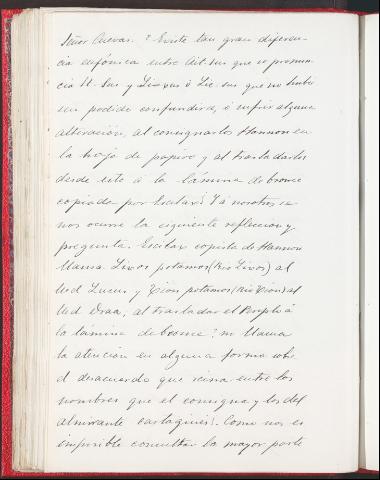 Señor Cuevas. ? Existe tan gran diferen-
cia eufónica entre
cia y Lixus ó Lic-sus que no hubie
sen podido confundirse, ó sufrir alguna
alteración, al consignarlos Hannon en
la hoja de papiro y al trasladarlos
desde esto á la lámina de bronce
copiada por Escilax? Yá nosotros se
nos ocurre la siguiente reflexion y
pregunta. Escilax copista de Hannon
llama Lixos potamos (Rio Lixos) al
Ued Lucus y Xion potamos (Rio Xion) al
Ued Draa, al trasladar el Periplo á
la lámina de bronce? ni llama
la atención en alguna forma sobre
el desacuerdo que reina entre los
nombres que el consigna y los del
almirante cartaginés. Como nos es
imposible consultar la mayor parte